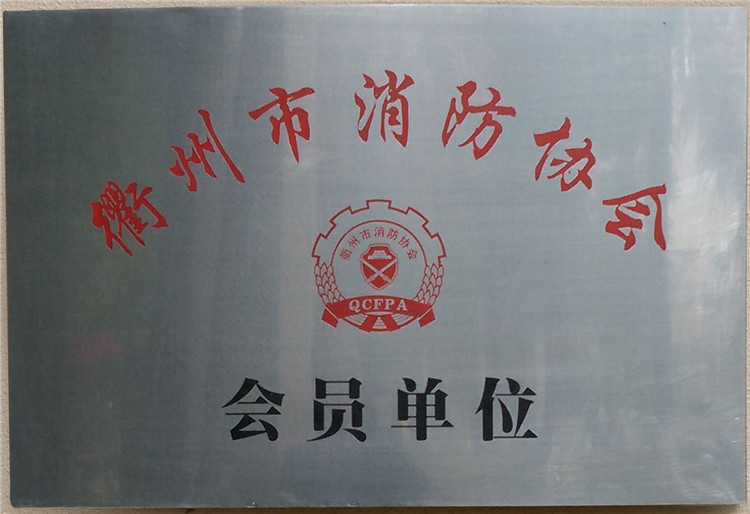 衢州市消防协会
衢州市消防协会
QCFPA
会员单位